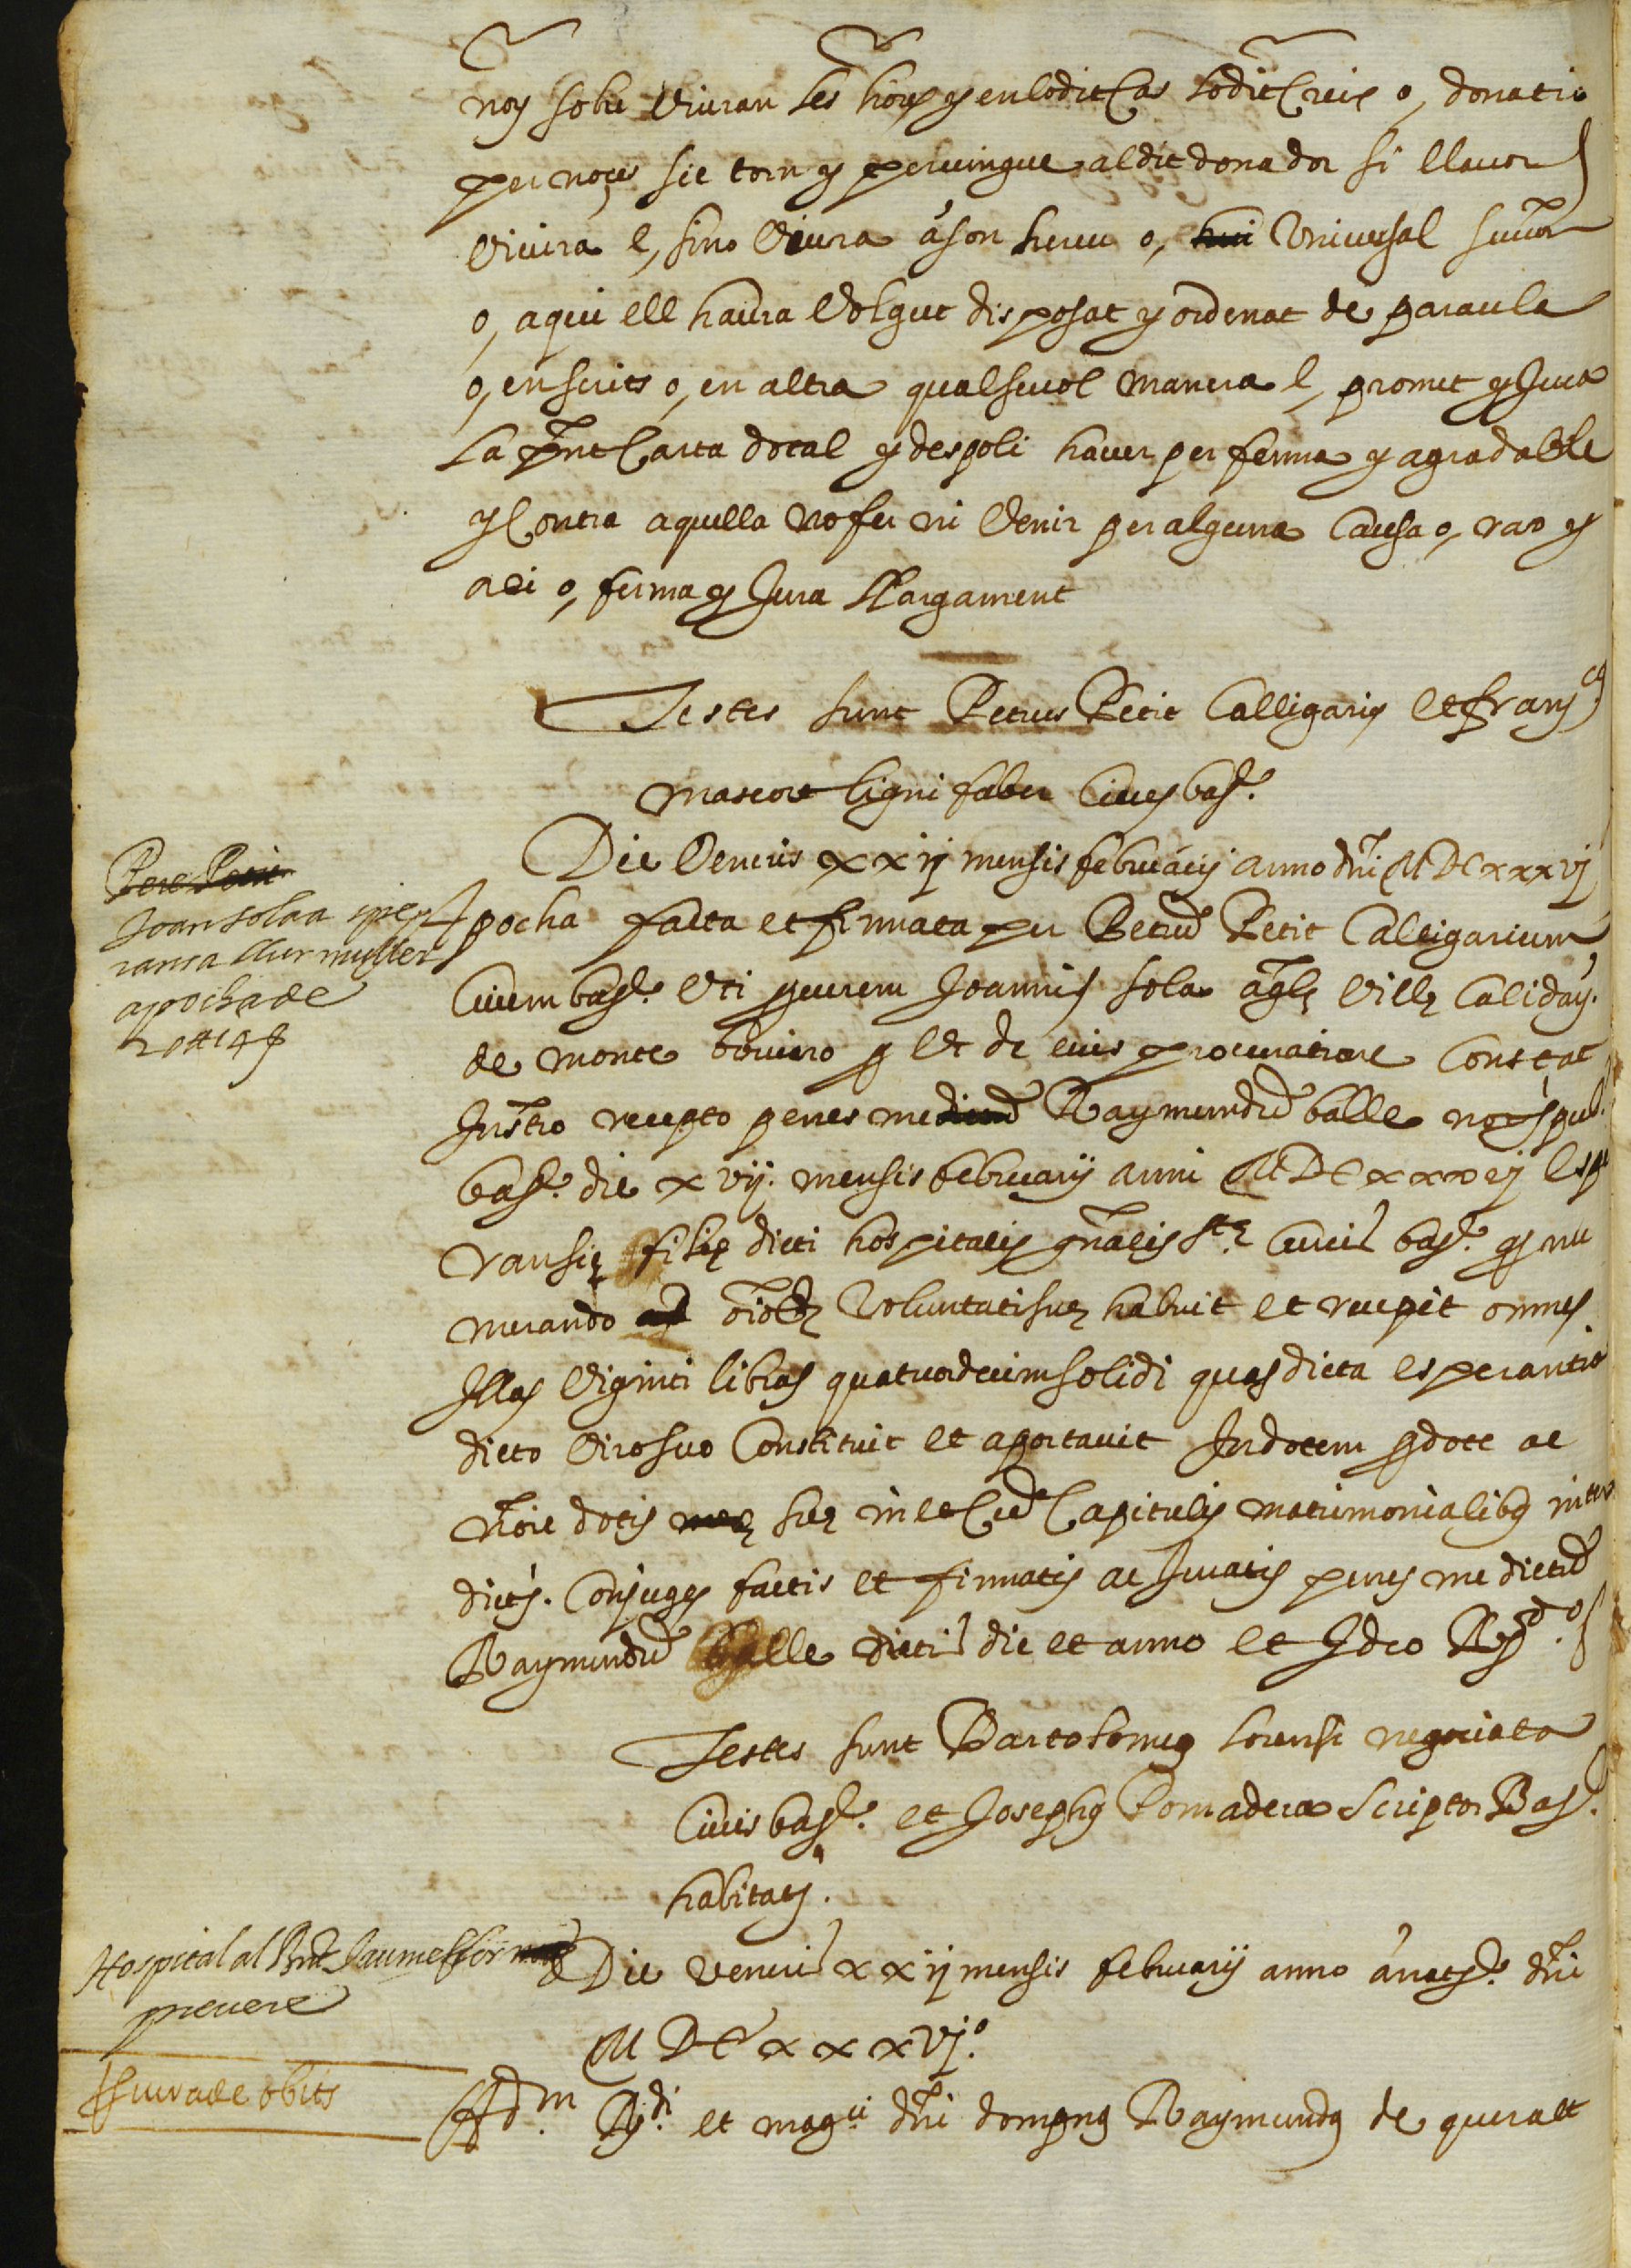 noy sobre viuran les hores y en lo dit cas lo dit creix o, donatio
per noçes sie torn y pervingue al dit donador si llavors
viura e, sino viura a son hereu o, hui universal succor
o, a qui ell haura volgut disposat y ordenat de paraula
o, en scrits o, en altra qualsevol manera e, promet y Jura
La pnt Carta dotal y de spoli haver per ferma y agradable
y Contra aquella no fer ni venir per alguna Causa o, rao y
axi o, ferma y Jura Llargament
Testes sunt Petrus Petit Calligarius et Franjcus
mascort ligni faber Cives baR.
Die Veneris xxij mensis februarij anno dni MDCxxxvj
Pere Petit
Joan sola y spe
ransa llur muller
apocha de
20 ℔ 14 s
Apocha facta et firmata per Petrum Petit Calligarium
Civem baR. Uti procurem Joannis sola agle ville Calidarum
de monte bovino pro Ut de eius procuratione Constat
Instro recepto penes me dictum Raymundum batlle notum pub.
baR. die xvij. mensis februarij anni MDCxxxvj Espe
ransie filie dicti hospitalis gnalis Ste Crucis baR. qi nu
merando ad oiode voluntati sue habuit et recepit omnes
Illas viginti libras quatuordecim solidi quas dicta esperantia
dicto viro suo Constituit et aportavit In dotem pro dote ac
noie dotis mee sue in et Cum Capitulis matrimonialibus inter
dictos. Conjuges factis et firmatis ac Juratis penes me dictum
Raymundum batlle dictis die et anno et Ideo Rndo.
Testes sunt Bartolomeus Lorensi negociator
Civis baR. et Josephus Pomadera Scriptor BaR.
habitans.
Hospital al Rnt Jaume Ferrer
prevere
Die veneris xxij mensis februarij anno a natte. dni
MDCxxxvj.º
Jura de obits
Adm Rdi. et magci dni dompnus Raymundus de queralt